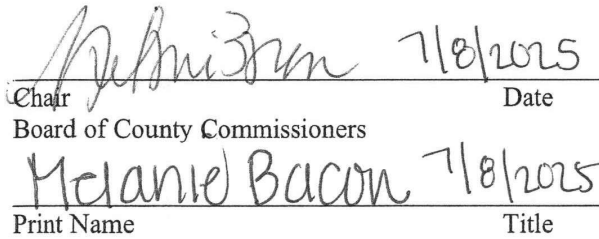 7/8/2025
Chair Date
Board of County Commissioners
Melanie Bacon 7/8/2025
Print Name Title